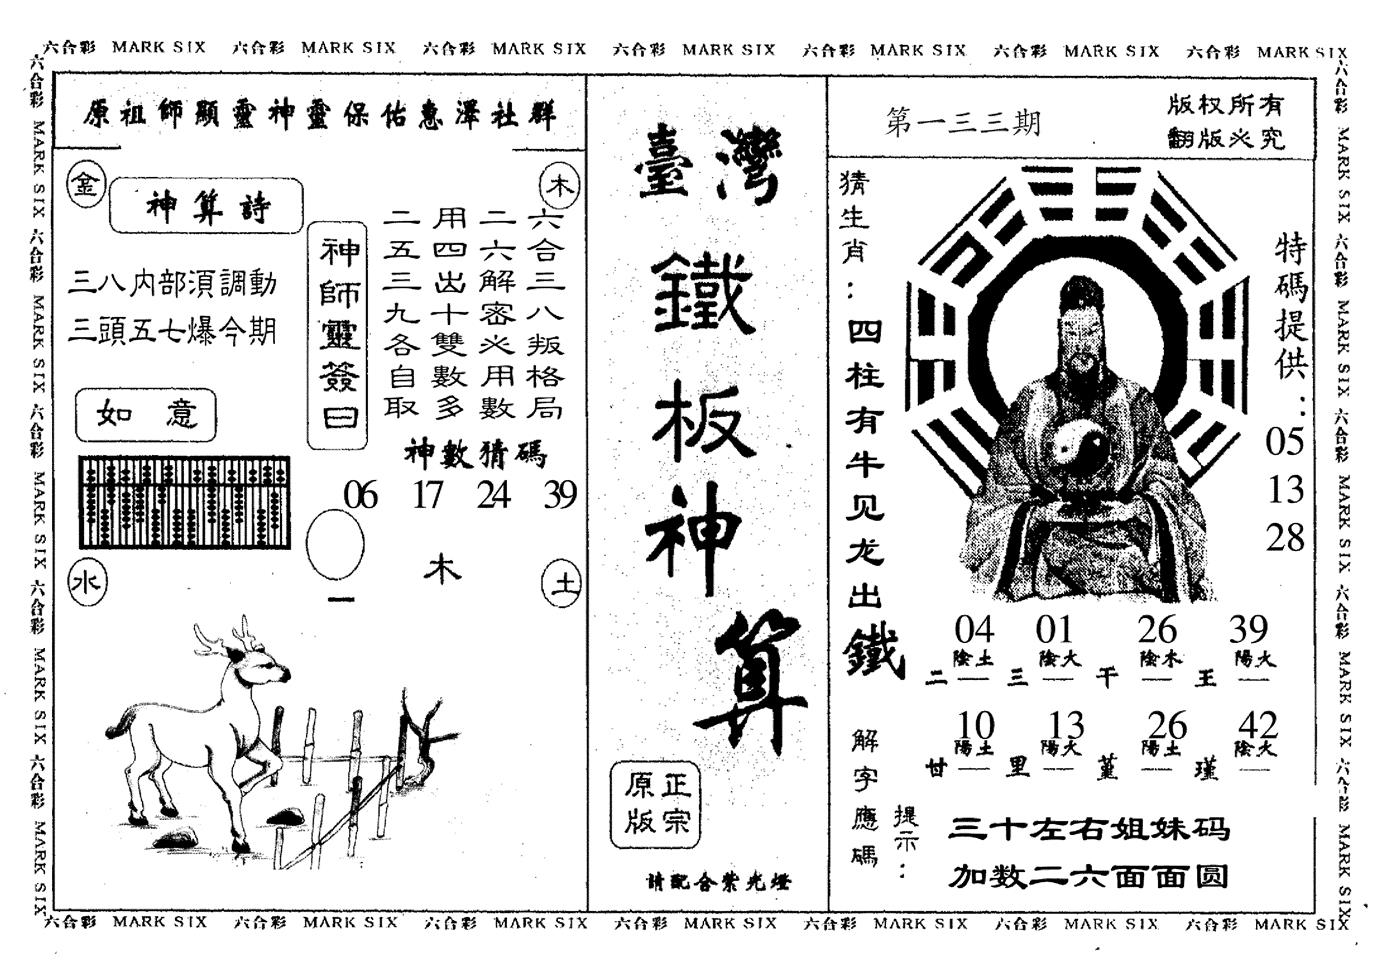 六合彩 MARK SIX 六合彩 MARK SIX 六合彩 MARK SIX 六合彩 MARK SIX 六合彩 MARK SIX 六合彩 MARK SIX 六合彩 MARK SIX
六合彩 MARK SIX 六合彩 MARK SIX 六合彩 MARK SIX 六合彩 MARK SIX 六合彩 MARK SIX
原祖師顯靈神靈保佑惠澤社群
金
木
神算詩
三八内部湏調動
三頭五七爆今期
神師靈簽曰
六合三八叛格局
二六解密必用數
用四出十雙數多
二五三九各自取
如意
神數猜碼
06 17 24 39
木
一
水
土
臺灣
鐵板神算
正宗
原版
請配合紫光燈
第一三三期
版权所有
翻版必究
猜生肖：四柱有牛见龙出鐵
特碼提供：
05
13
28
04 01 26 39
陰土 陰火 陰木 陽火
二 三 干 王
10 13 26 42
陽土 陽火 陽土 陰火
甘 里 堇 瑾
解字應碼
提示：
三十左右姐妹码
加数二六面面圆
六合彩 MARK SIX 六合彩 MARK SIX 六合彩 MARK SIX 六合彩 MARK SIX 六合彩 MARK SIX
六合彩 MARK SIX 六合彩 MARK SIX 六合彩 MARK SIX 六合彩 MARK SIX 六合彩 MARK SIX 六合彩 MARK SIX 六合彩 MARK SIX